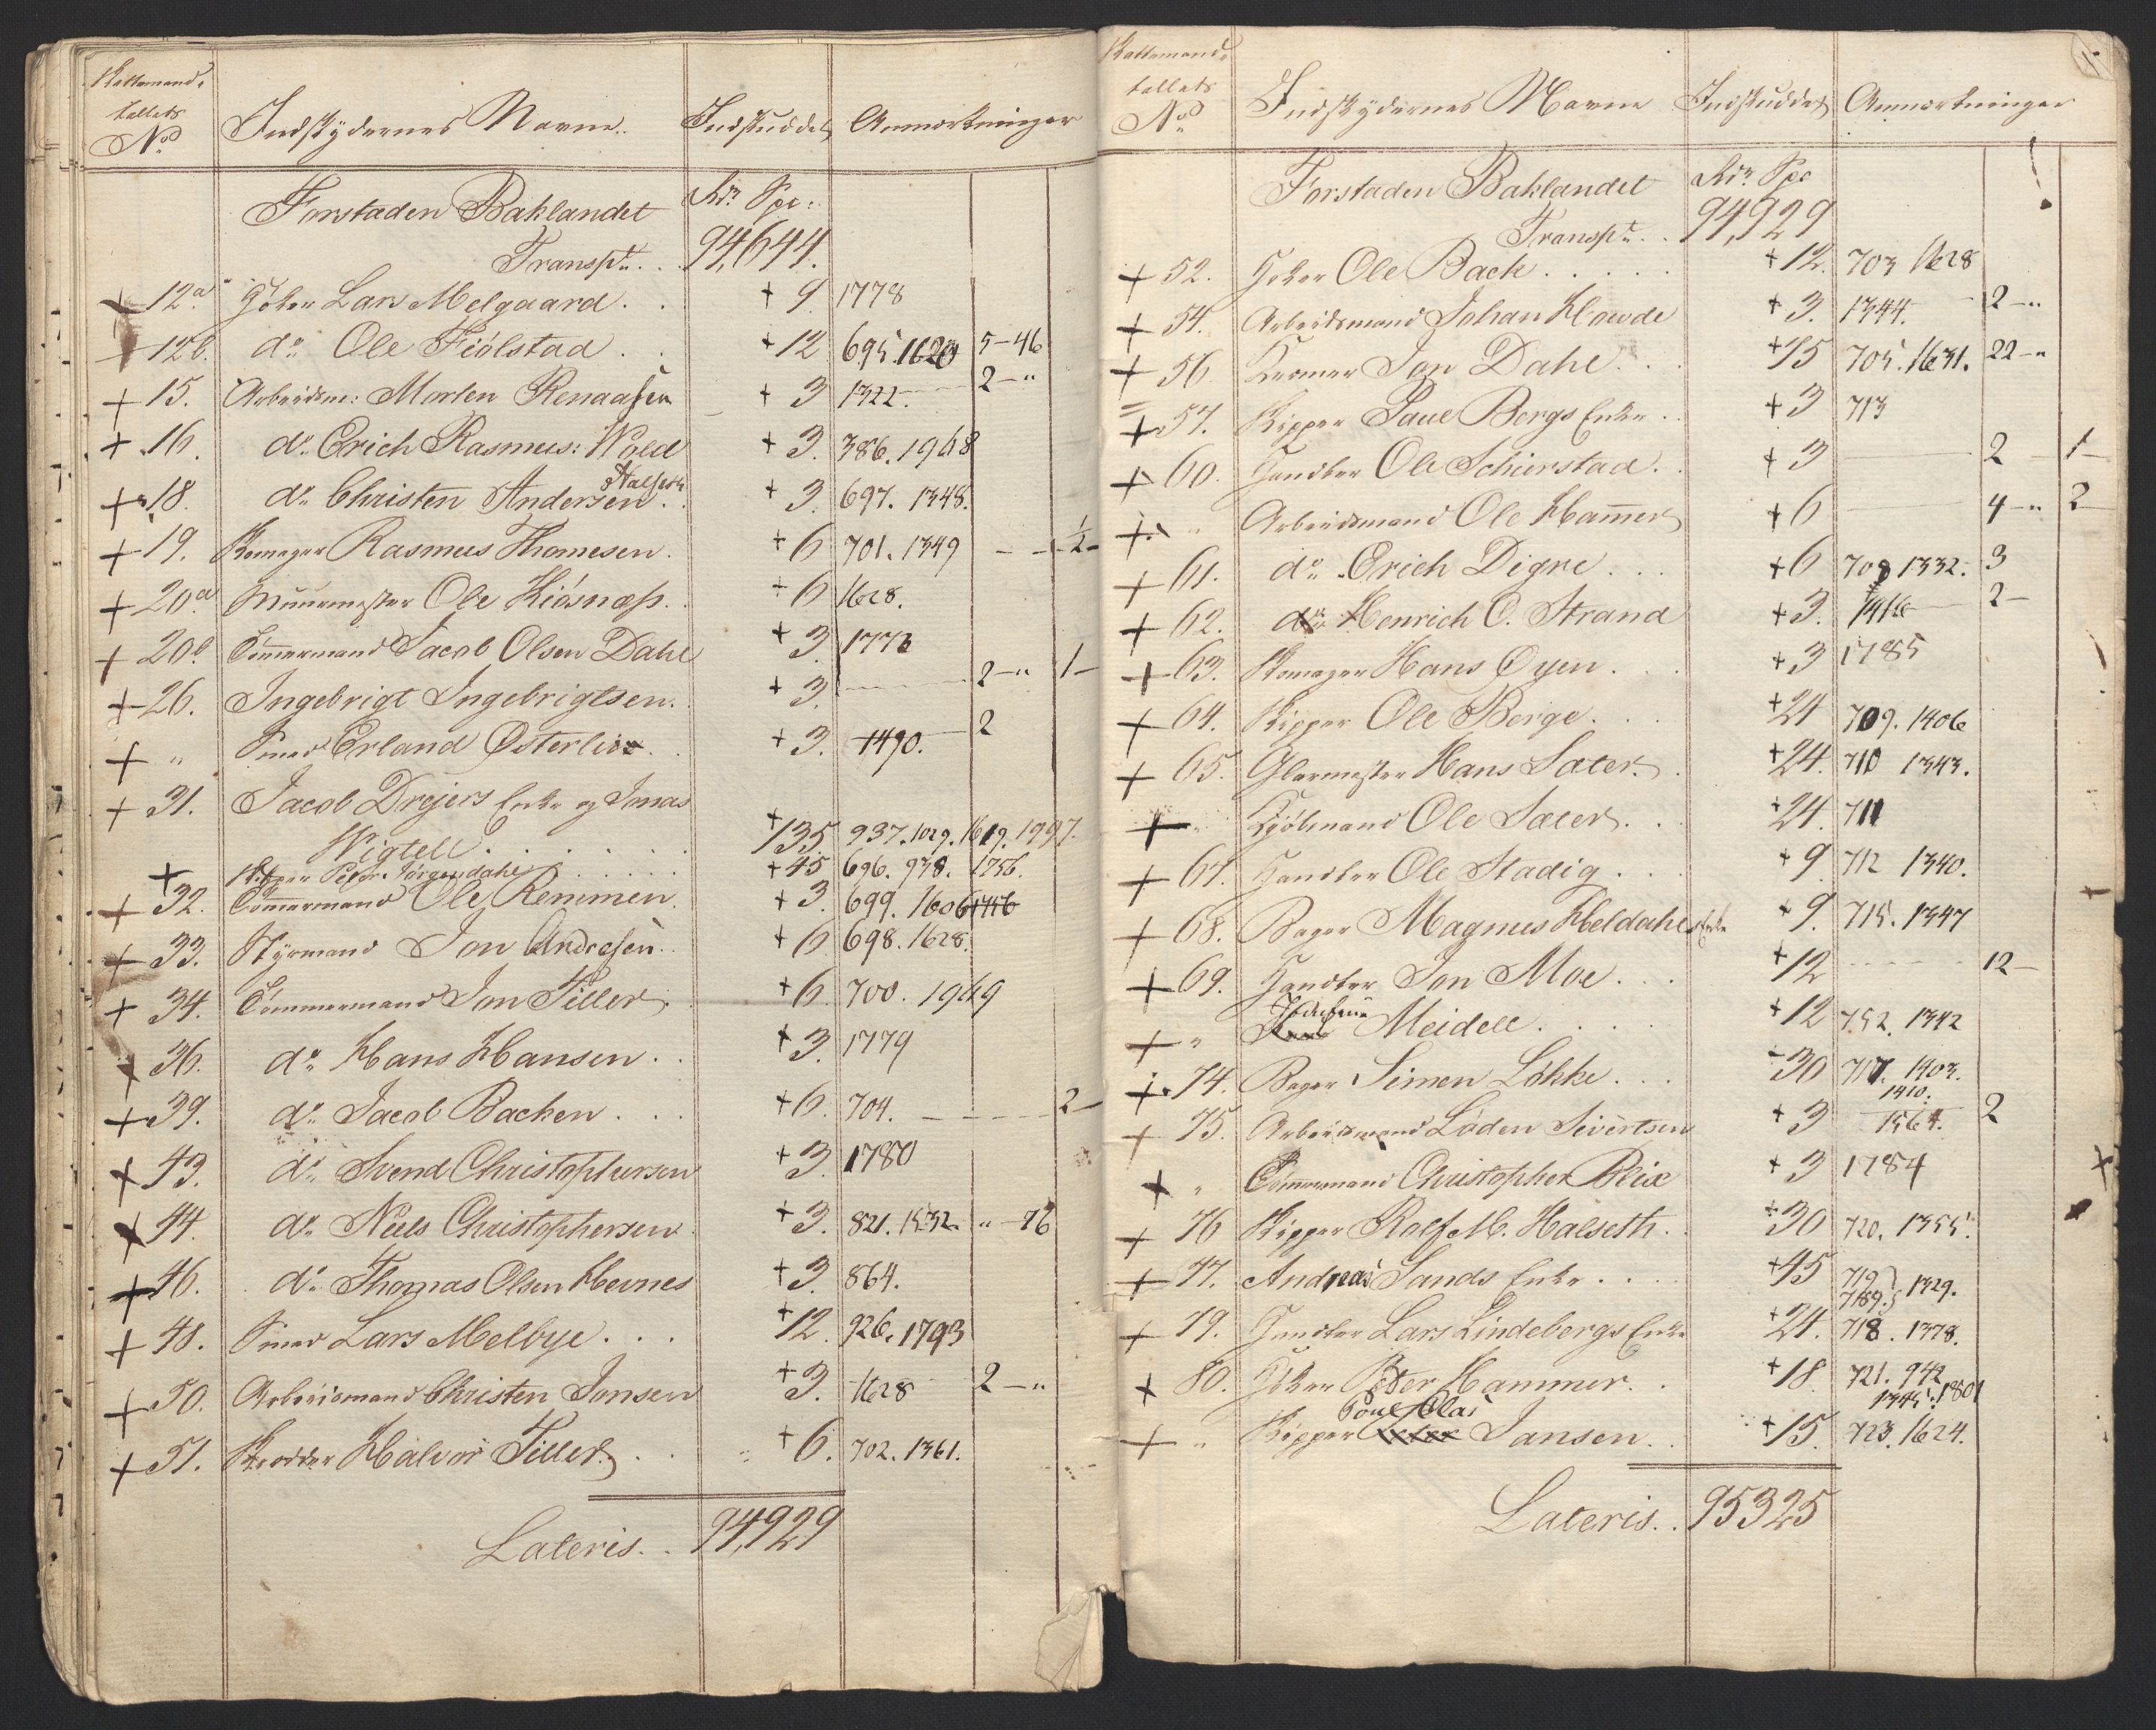 Skattemand-
tallets
No Indskydernes Navne. Indskuddet Anmærkninger
Forstaden Baklandet Rdr. Spc:
Transpt. . . 94,644.
+ 12a Høker Lars Melgaard . . + 9. 1778
+ 12b. do Ole Fiölstad . . + 12 695. 1620 5-46
+ 15. Arbeidsm: Morten Renaasen + 3 1322. 2-"
+ 16. do Erich Rasmus: Wold + 3. 386. 1968
+ 18. do Christen Andersen Halseth . + 3. 697. 1348.
+ 19. Skomager Rasmus Thomesen. + 6 701. 1349 - - 1/2 -
+ 20a Muurmester Ole Kiösnæss. + 6 1628.
+ 20b Tömmermand Jacob Olsen Dahl + 3. 1773
+ 26. Ingebrigt Ingebrigtsen. + 3. 2-" 1-
+ " Smed Erland Østerlie . + 3. 1490. 2
+ 31. Jacob Drejers Enke og Jonas
Wigtell . . . . . . + 135 937. 1029. 1619. 1997.
+ Skipper Peter Jörgendahl . . . . . + 45 696. 938. 1756.
+ 32. Tömmermand Ole Remmen. + 3 699. 1606 1756
+ 33. Styrmand Jon Andresen . . + 6 698. 1628.
+ 34. Tömmermand Jon Tiller . + 6. 700. 1969
+ 36. do Hans Hansen . . + 3. 1779
+ 39. do Jacob Backen . . . + 6. 704. - - 2 -
+ 43. do Svend Christophersen + 3. 1780
+ 44. do Niels Christophersen + 3. 821. 1532. " -96
+ 46. do Thomas Olsen Hevnes + 3. 864.
+ 48. Smed Lars Melbye . . . + 12. 926. 1793
+ 50. Arbeidsmand Christen Jonsen + 3. 1628 2-"
+ 51. Skrædder Halvor Tiller . . + 6. 702. 1361.
Lateris. . 94,929
Skattemand-
tallets
No Indskydernes Navne Indskuddet Anmærkninger
Forstaden Baklandet Rdr. Spc
Transpt. . . 94,929
+ 52. Høker Ole Bach . . . . . + 12. 703 1628
+ 54. Arbeidsmand Johan Howde + 3. 1344. 2-"
+ 56. Kræmer Jon Dahl . . . + 15 705. 1631. 22-"
+ 57. Skipper Paul Bergs Enke . . + 3 713
+ 60. Handler Ole Schierstad . . + 3 2 1-
+ " Arbeidsmand Ole Hamer + 6 4-" 2
+ 61. do Erich Digre . . . + 6 708 1332. 3
+ 62. do Henrich O. Strand + 3. 1416 2-
+ 63. Skomager Hans Oyen . . . + 3 1785
+ 64. Skipper Ole Berge . . . + 24 709. 1406
+ 65. Glarmester Hans Sæter . . + 24. 710 1343.
+ " Kjöbmand Ole Sæter . . + 24. 711
+ 67. Handler Ole Stadig . . . + 9 712 1340.
+ 68. Bager Magnus Heldahls Enke + 9. 715. 1347
+ 69. Handler Jon Moe . . . + 12 12 -
+ " Meidell . . . . + 12 752. 1342
+ 74. Bager Simen Lökke . . . 30 707. 1403.
1410.
+ 75. Arbeidsmand Löden Sivertsen + 3 1564. 2
+ " Tömmermand Christopher Blix + 3 1784
+ 76 Skipper Rolf M. Halseth . . + 30 720. 1355.
+ 77. Andreas Sands Enke . . . . + 45 719 1329.
789.
+ 79. Handler Lars Lindebergs Enke + 24. 718. 1378.
+ 80. Høker Peter Hammer. . + 18 721. 942
1345. 1801
+ " Skipper Poul Olai Jansen. . + 15. 723. 1624.
Lateris. . 95325